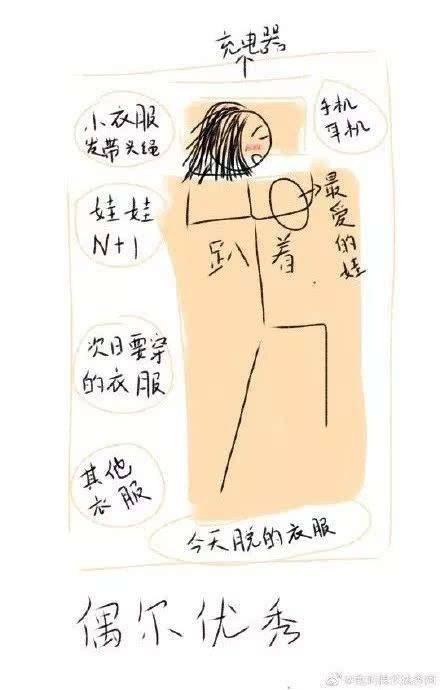 充电器
小衣服
发带头绳
手机
耳机
娃娃
N+1
最爱的娃
趴着
次日要穿
的衣服
其他
衣服
今天脱的衣服
偶尔优秀